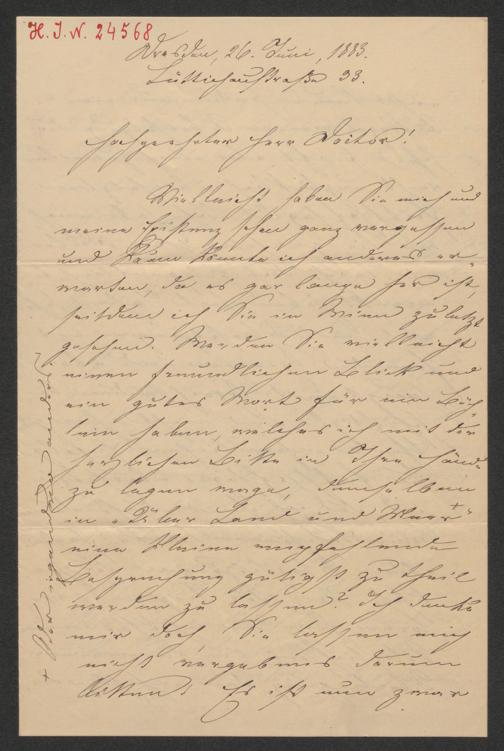 H. I. N. 24568
Dresden, 26. Juni, 1883.
Lüttichaustraße 33.
Hochgeehrter Herr Doctor!
Vielleicht haben Sie mich und
meine Existenz schon ganz vergessen
und kaum konnte ich anderes er-
warten, da es gar lange her ist,
seitdem ich Sie in Wien zuletzt
gesehen. Werden Sie vielleicht
einen freundlichen Blick und
ein gutes Wort für ein Büch-
lein haben, welches ich mit der
herzlichen Bitte in Ihre Hände
zu legen wage, demselben
in „Über Land und Meer"+
eine kleine empfehlende
Besprechung gütigst zu theil
werden zu lassen? Ich denke
mir doch Sie lassen mich
nicht vergebens darum
bitten! Es ist nun zwar
+ Oder irgendwo anders?